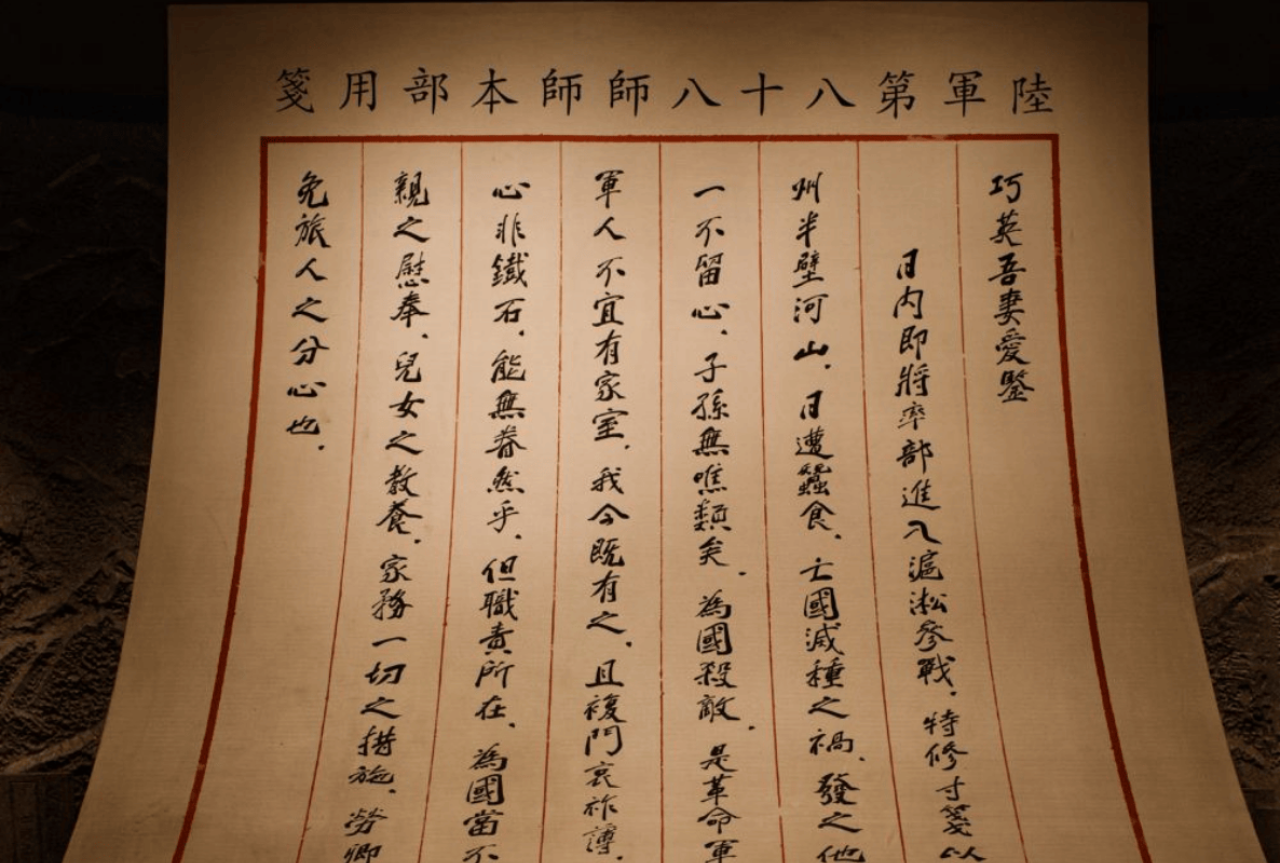 陸軍第八十八師師本部用箋
巧英吾妻愛鑒
日内即將率部進入滬淞參戰.特修寸箋以
州半壁河山.日遭蠶食.亡國滅種之禍.發之他
一不留心.子孫無噍類矣.為國殺敵.是革命軍
軍人不宜有家室.我今既有之.且複門衰祚薄.
心非鐵石.能無眷然乎.但職責所在.為國當不
親之慰奉.兒女之教養.家務一切之措施.勞卿
免旅人之分心也.